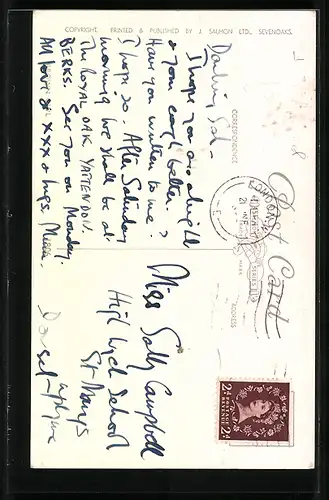 COPYRIGHT. PRINTED & PUBLISHED BY J. SALMON LTD., SEVENOAKS.
Post Card
CORRESPONDENCE
ADDRESS
Darling Sal –
I hope you are alright
& your cough better.
Have you written to me?
I hope so. After Saturday
morning we shall be at
The ROYAL OAK YATTENDON.
BERKS. See you on Monday.
All love & xxx & hugs.
Miss Sally Campbell
High School
St Marys
LONDON
2½D POSTAGE REVENUE 2½D